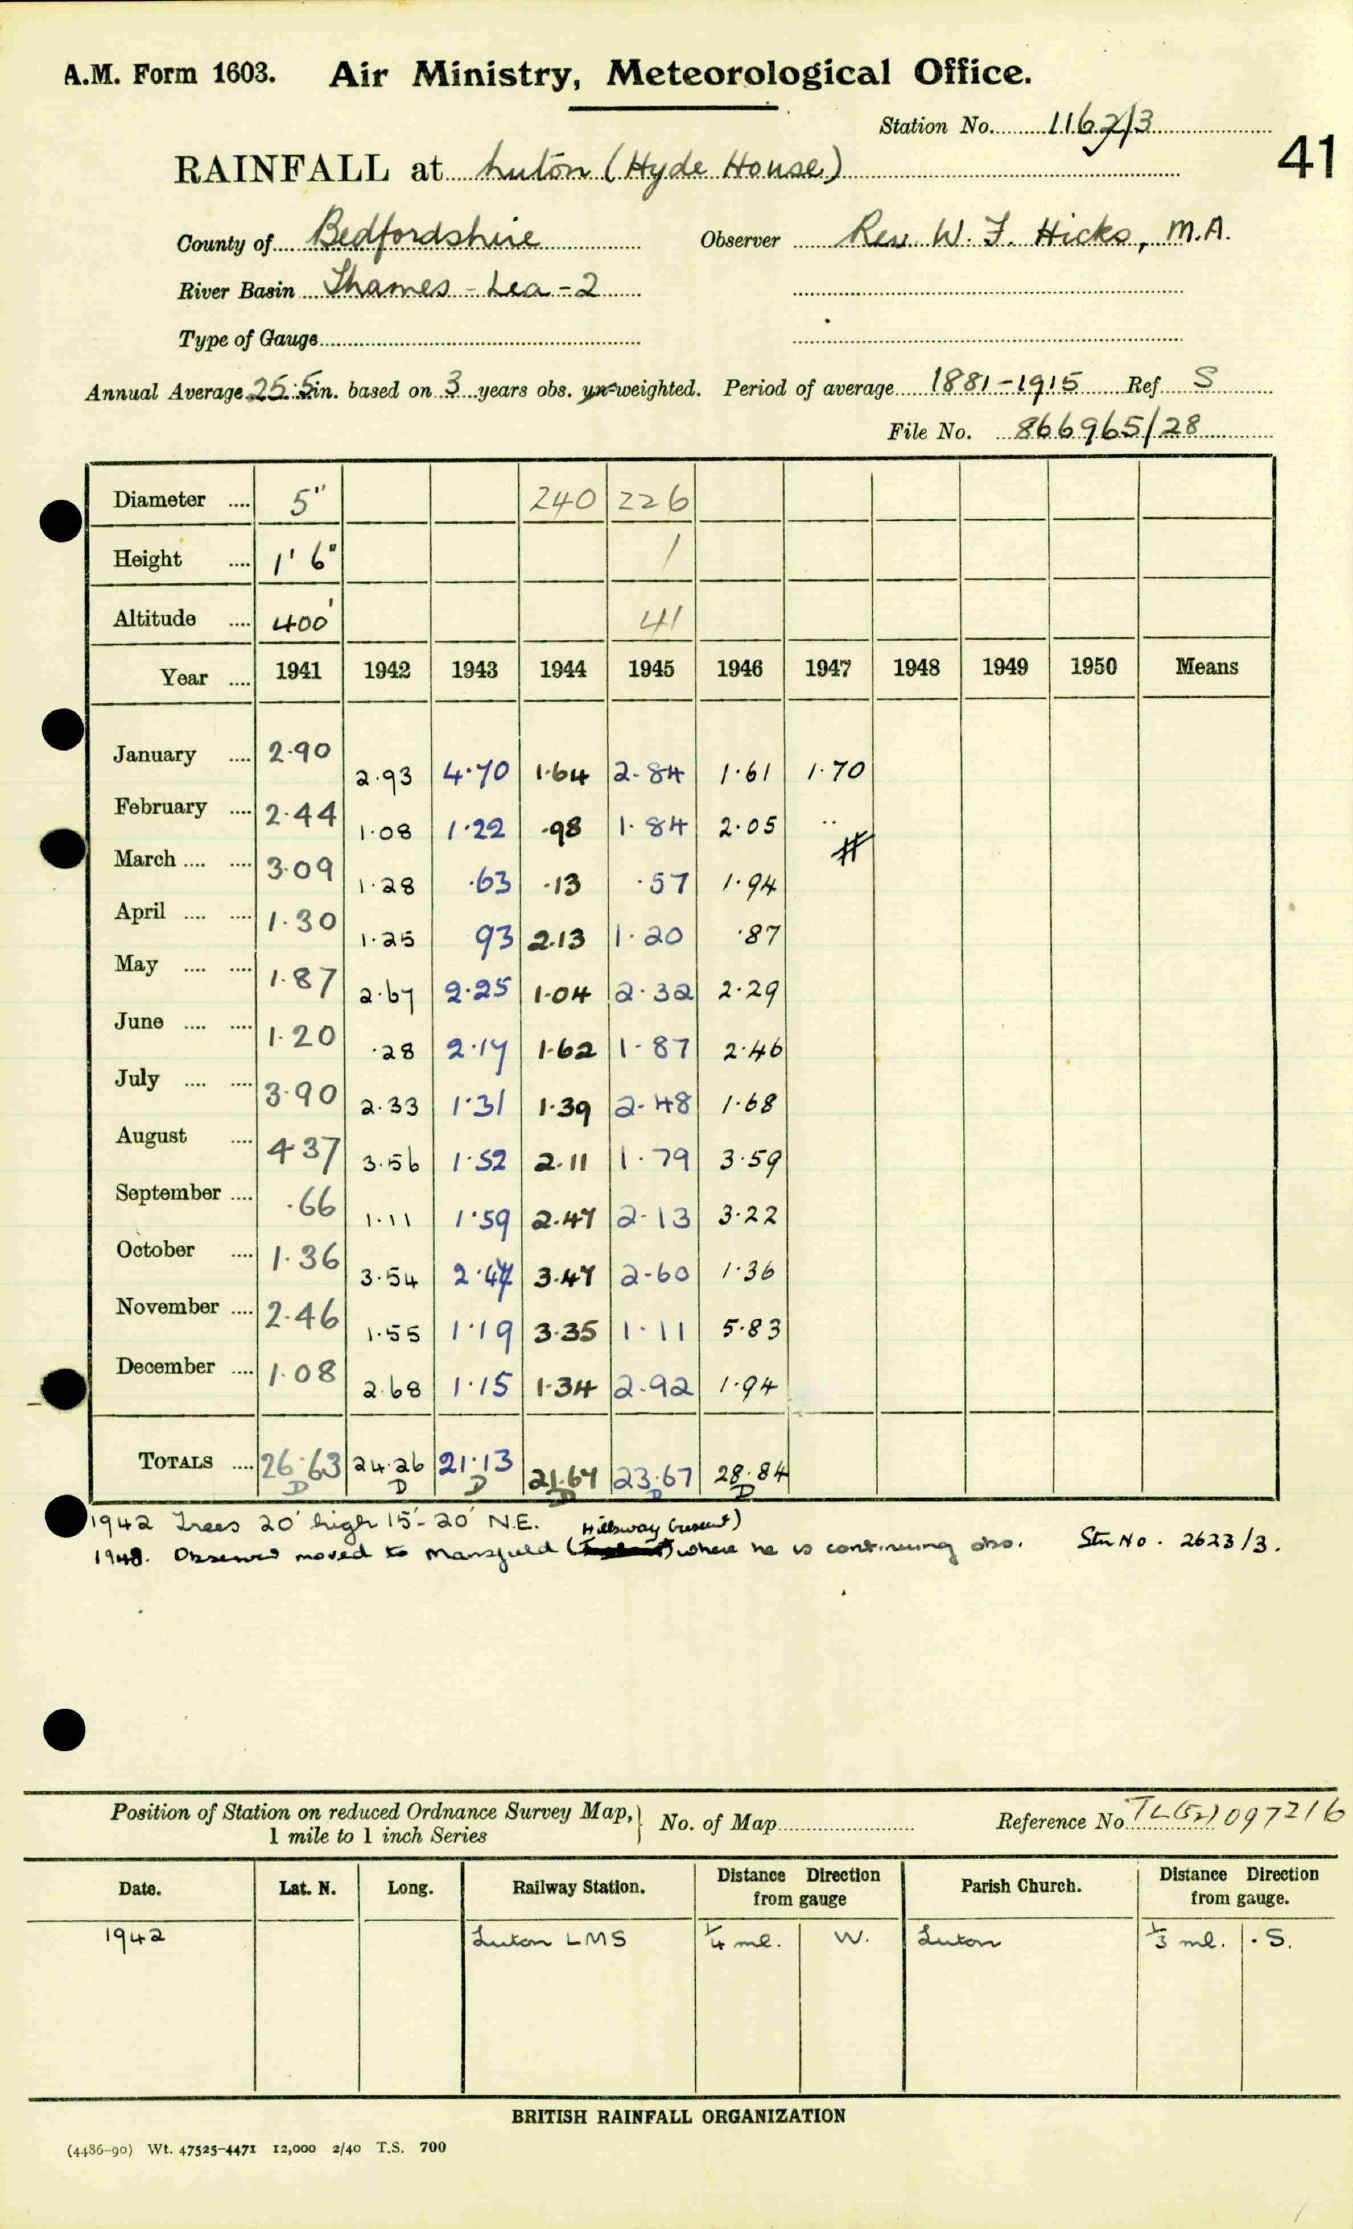 A.M. Form 1603. Air Ministry, Meteorological Office.
Station No. 1162/3
41
RAINFALL at Luton (Hyde House)
County of Bedfordshire Observer Rev. W. F. Hicks, M.A.
River Basin Thames - Lea - 2
Type of Gauge
Annual Average 25.5 in. based on 3 years obs. un-weighted. Period of average 1881-1915 Ref S
File No. 866965/28
Diameter .... 5" 240 226
Height .... 1' 6" 1
Altitude .... 400' 41
Year .... 1941 1942 1943 1944 1945 1946 1947 1948 1949 1950 Means
January .... 2.90 2.93 4.70 1.64 2.84 1.61 1.70
February .... 2.44 1.08 1.22 .98 1.84 2.05 ..
March .... .... 3.09 1.28 .63 .13 .57 1.94 #
April .... .... 1.30 1.25 93 2.13 1.20 .87
May .... .... 1.87 2.67 2.25 1.04 2.32 2.29
June .... .... 1.20 .28 2.17 1.62 1.87 2.46
July .... .... 3.90 2.33 1.31 1.39 2.48 1.68
August .... 4.37 3.56 1.52 2.11 1.79 3.59
September .... .66 1.11 1.59 2.47 2.13 3.22
October .... 1.36 3.54 2.47 3.47 2.60 1.36
November .... 2.46 1.55 1.19 3.35 1.11 5.83
December .... 1.08 2.68 1.15 1.34 2.92 1.94
TOTALS .... 26.63 24.26 21.13 21.67 23.67 28.84
D D D D D D
1942 Trees 20' high 15'-20' N.E. Hillsway Crescent)
1948. Observer moved to Mansfield ( where he is continuing obs. Stn No. 2623/3.
Position of Station on reduced Ordnance Survey Map, 1 mile to 1 inch Series } No. of Map Reference No. TL(52) 097216
Date. Lat. N. Long. Railway Station. Distance Direction from gauge Parish Church. Distance Direction from gauge.
1942 Luton LMS ¼ ml. W. Luton ⅓ ml. S.
BRITISH RAINFALL ORGANIZATION
(4486-90) Wt. 47525-4471 12,000 2/40 T.S. 700